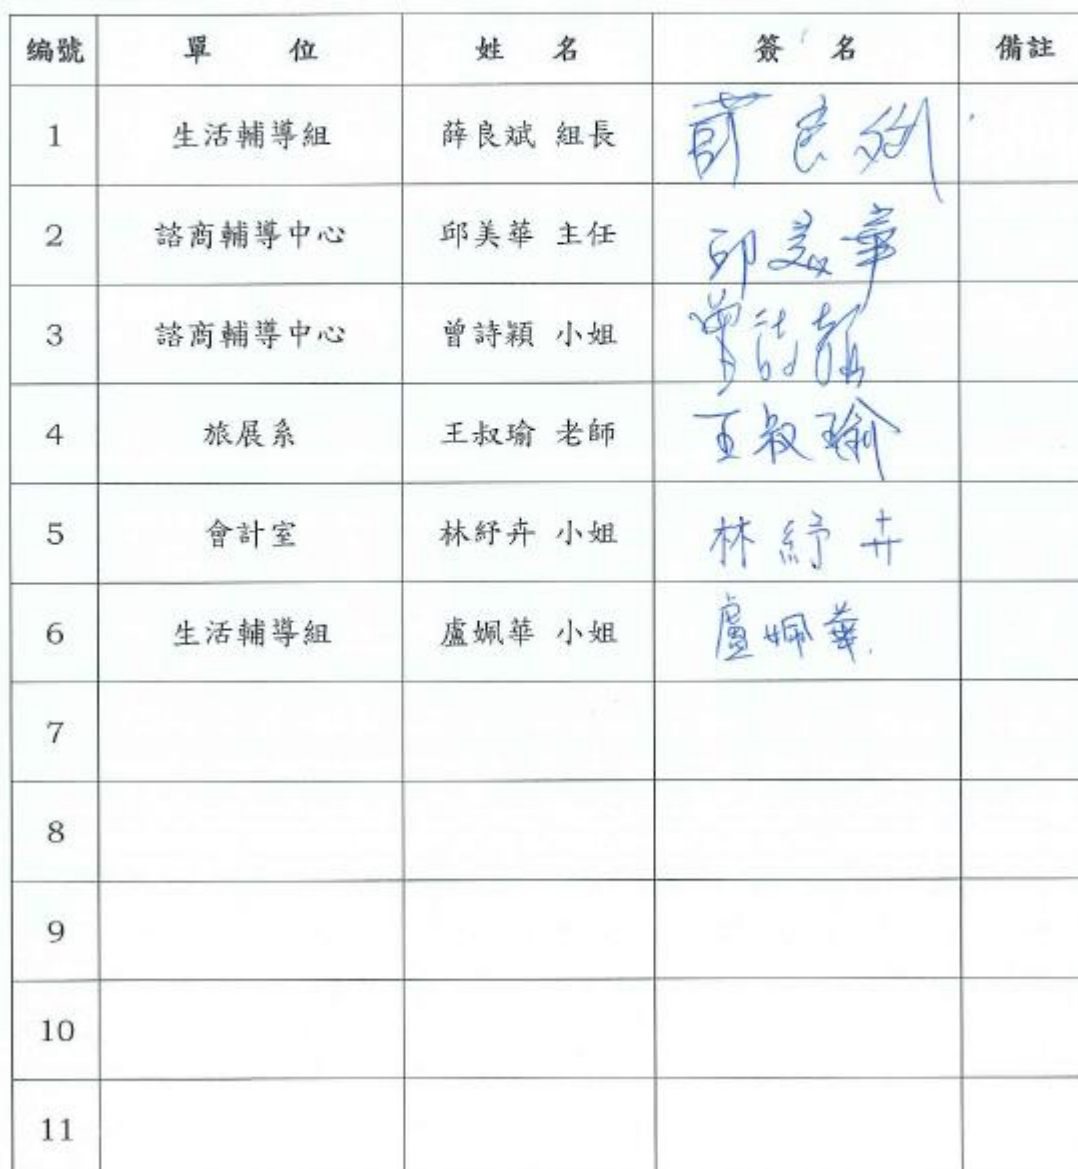 編號 單 位 姓 名 簽 名 備註
1 生活輔導組 薛良斌 組長 薛良斌
2 諮商輔導中心 邱美華 主任 邱美華
3 諮商輔導中心 曾詩穎 小姐 曾詩穎
4 旅展系 王叔瑜 老師 王叔瑜
5 會計室 林紓卉 小姐 林紓卉
6 生活輔導組 盧姵華 小姐 盧姵華
7
8
9
10
11